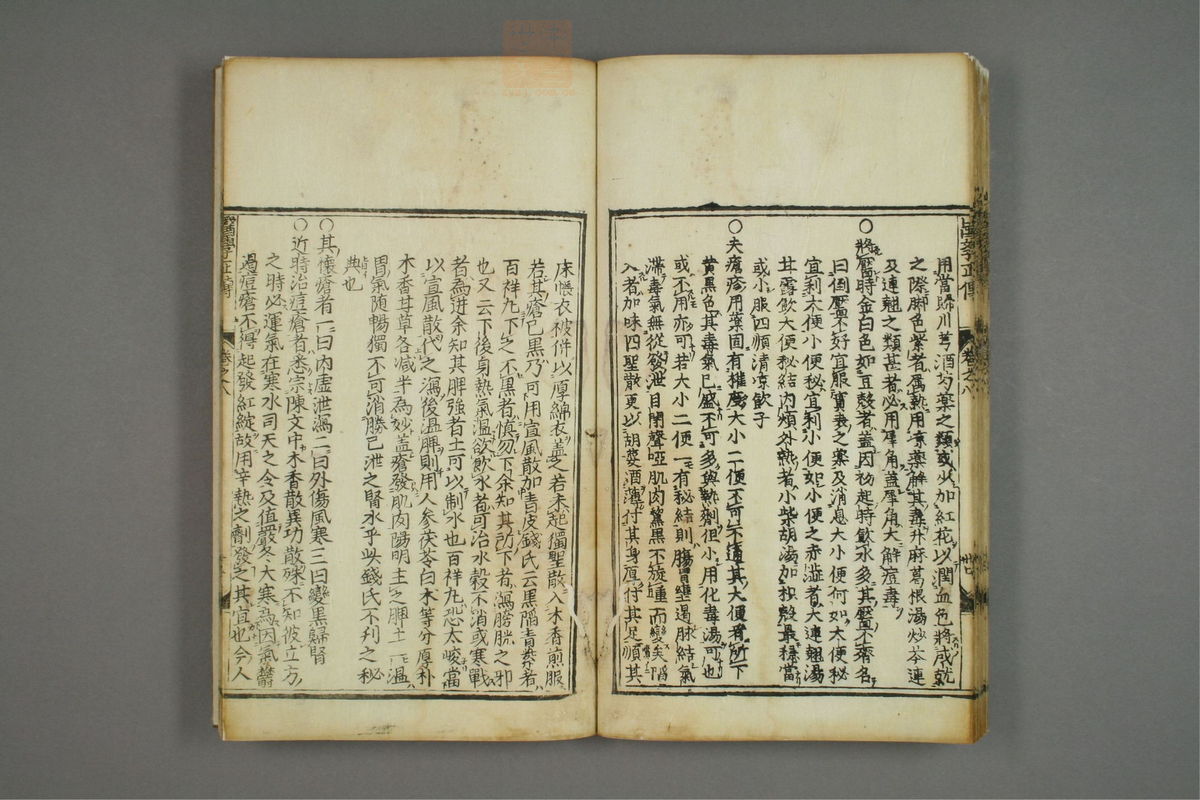 用當歸川芎酒芍藥之類或少加紅花以潤血色將成就
之際脚色紫者属熱用凉藥解其毒升麻葛根湯炒芩連
及連翹之類甚者必用犀角蓋犀角大解痘毒
○將靨時金白色如豆殼者蓋因初起時飲水多其靨不齊名
曰倒靨不好宜服實表之藥及消息大小便何如大便秘
宜利大便小便秘宜利小便如小便之赤澁者大連翹湯
甘露飲大便秘結内煩外熱者小柴胡湯加枳殼最穩當
或小服四順清凉飲子
○夫瘡疹用藥固有權度大小二便不可不通其大便有所下
黄黒色其毒氣已盛不可多與熱劑但小用化毒湯可也
或不用亦可若大小二便一有秘結則腸胃壅遏脉結氣
滞毒氣無從發泄目閉聲啞肌肉黧黒不旋踵而變矣陷
入者加味四聖散更以胡荽酒薄付其身厚付其足順其
床帳衣被併以厚綿衣盖之若未起獨聖散入木香煎服
若其瘡已黒乃可用宣風散加青皮錢氏云黒陷青紫者
百祥丸下之不黒者慎勿下余知其所下者瀉膀胱之邪
也又云下後身熱氣温欲飲水者可治水穀不消或寒戰
者為逆余知其脾強者土可以制水也百祥丸恐太峻當
以宣風散代之瀉後温脾則用人参茯苓白朮等分厚朴
木香甘草各减半為妙盖瘡發肌肉陽明主之脾土一温
胃氣随暢獨不可消勝已泄之腎水乎此錢氏不刋之秘
典也
○其懷瘡者一曰内虚泄瀉二曰外傷風寒三曰變黒歸腎
○近時治痘瘡者悉宗陳文中木香散異功散殊不知彼立方
之時必運氣在寒水司天之令及值嚴冬大寒為因氣欝
遏痘瘡不得起發紅綻故用辛熱之劑發之其宜也今人
醫學正傳
卷之八
卷之八
廿七